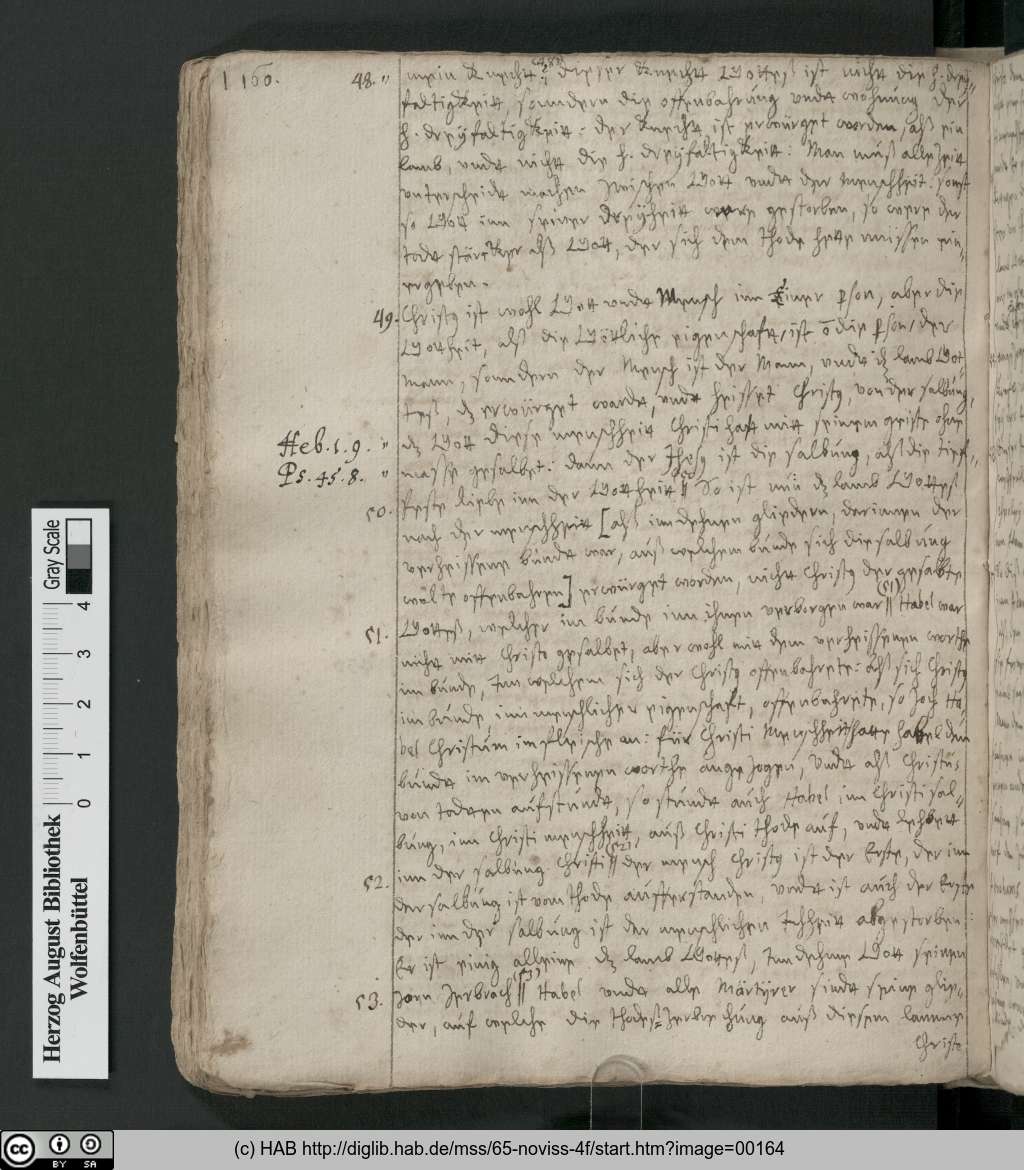 160.
48. mein Knecht: dieser Knecht Gottes ist nicht die h. drey-
faltigkeit, sonndern die offenbahrung undt wohnung der
h. dreyfaltigkeit: der Knecht ist erwürget worden, alß ein
lamb, undt nicht die h. dreyfaltigkeit: Man muß alle Zeit
unterscheidt machen zwischen Gott undt der menschheit: sonst
so Gott inn seiner dreyheit were gestorben, so were der
todt stärcker alß Gott, der sich dem thode hette müssen ein-
ergeben.
49. Christq ist wohl Gott undt Mensch inn Einer person, aber die
Gottheit, alß die Götliche eigenschafft, ist die person, der
Mann, sonndern der Mensch ist der Mann, undt dz lamb Got-
teß, dz erwürget wardt, undt heisset Christq, von der salbung,
Heb. 1. 9. dz Gott diese menschheit Christi hatt mit seinem geiste ohne
Ps. 45. 8. masse gesalbet: dann der Jhesq ist die salbung, alß die tieff-
50. feste liebe inn der Gottheit || So ist nuu dz lamb Gotteß
nach der menschheit [alß inn dehnen gliedern, darinnen der
verheissene bundt war, auß welchem bunde sich die salbung
wolte offenbahren] erwürget worden, nicht Christq der gesalbte
51. Gotteß, welcher im bunde inn ihnen verborgen war (51) || Habel war
nicht mit Christo gesalbet, aber wohl mit dem verheissenen worthe
im bunde, Inn welchem sich der Christq offenbahrete: alß sich Christq
im bunde inn menschlicher eigenschafft, offenbahrete, so zoch Ha-
bel Christum im fleische an: für Christi Menschheit hatte Habel den
bundt im verheissenen worthe angezogen, Undt alß Christus
von todten aufstundt, so stundt auch Habel inn Christi sal-
bung, inn Christi menschheit, auß Christi thode auf, undt lebet
52. inn der salbung Christi (52) || der mensch Christq ist der Erste, der inn
der salbung ist vom thode aufferstanden, undt ist auch der Erste
der inn der salbung ist der menschlichen Ichheit abgestorben:
Er ist einig alleine dz lamb Gotteß, Inn dehme Gott seinen
53. Zorn Zerbrach (53) || Habel undt alle Märtyrer sindt seine glie-
der, auf welche die thodes=Zerbrechung auß diesem lamme
Christe
Herzog August Bibliothek
Wolfenbüttel
0 1 2 3 4
Gray Scale
CC BY SA
(c) HAB http://diglib.hab.de/mss/65-noviss-4f/start.htm?image=00164